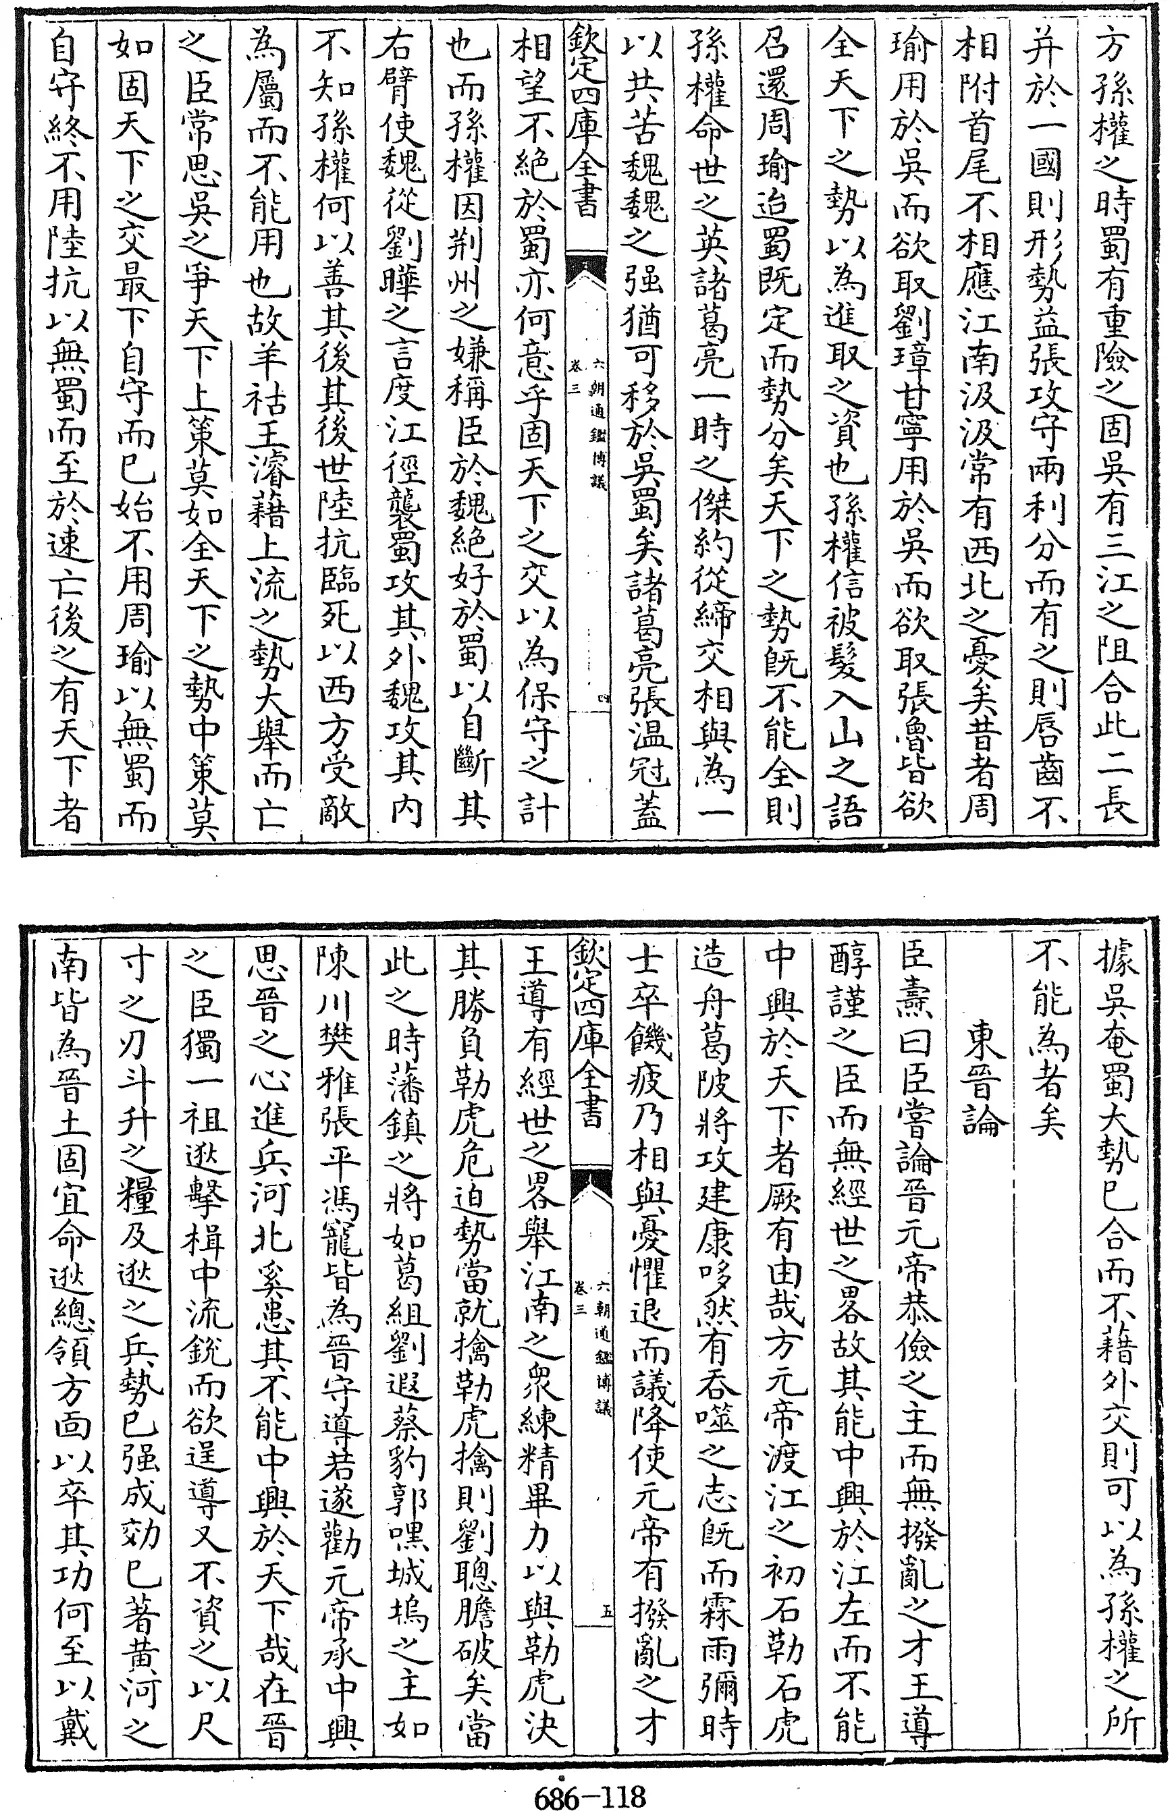 方孫權之時蜀有重險之固吳有三江之阻合此二長
并於一國則形勢益張攻守兩利分而有之則唇齒不
相附首尾不相應江南汲汲常有西北之憂矣昔者周
瑜用於吳而欲取劉璋甘寧用於吳而欲取張魯皆欲
全天下之勢以為進取之資也孫權信被髮入山之語
召還周瑜迨蜀既定而勢分矣天下之勢既不能全則
孫權命世之英諸葛亮一時之傑約從締交相與為一
以共苦魏魏之强猶可移於吳蜀矣諸葛亮張溫冠蓋
欽定四庫全書
六朝通鑑博議
卷三
四
相望不絕於蜀亦何意乎固天下之交以為保守之計
也而孫權因荆州之嫌稱臣於魏絕好於蜀以自斷其
右臂使魏從劉曄之言度江徑襲蜀攻其外魏攻其内
不知孫權何以善其後其後世陸抗臨死以西方受敵
為屬而不能用也故羊祜王濬藉上流之勢大舉而亡
之臣常思吳之爭天下上策莫如全天下之勢中策莫
如固天下之交最下自守而已始不用周瑜以無蜀而
自守終不用陸抗以無蜀而至於速亡後之有天下者
據吳奄蜀大勢已合而不藉外交則可以為孫權之所
不能為者矣
東晉論
臣燾曰臣嘗論晉元帝恭儉之主而無撥亂之才王導
醇謹之臣而無經世之畧故其能中興於江左而不能
中興於天下者厥有由哉方元帝渡江之初石勒石虎
造舟葛陂將攻建康哆然有吞噬之志既而霖雨彌時
士卒饑疲乃相與憂懼退而議降使元帝有撥亂之才
欽定四庫全書
六朝通鑑博議
卷三
五
王導有經世之畧舉江南之衆練精畢力以與勒虎決
其勝負勒虎危迫勢當就擒勒虎擒則劉聰膽破矣當
此之時藩鎮之將如葛組劉遐蔡豹郭嘿城塢之主如
陳川樊雅張平馮寵皆為晉守導若遂勸元帝承中興
思晉之心進兵河北奚患其不能中興於天下哉在晉
之臣獨一祖逖擊楫中流銳而欲逞導又不資之以尺
寸之刃斗升之糧及逖之兵勢已强成効已著黄河之
南皆為晉土固宜命逖總領方面以卒其功何至以戴
686-118